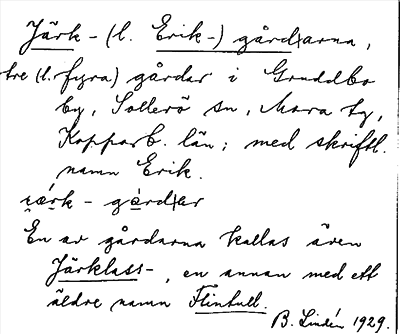 Järk- (l. Erik-) gårdarna,
tre (l. fyra) gårdar i Gruddbo
by, Sollerö sn, Mora tg,
Kopparb. län; med skriftl.
namn Erik.
i̯ærk - gàrdar
En av gårdarna kallas även
Järklass-, en annan med ett
äldre namn Flintull.
B. Lindén 1929.